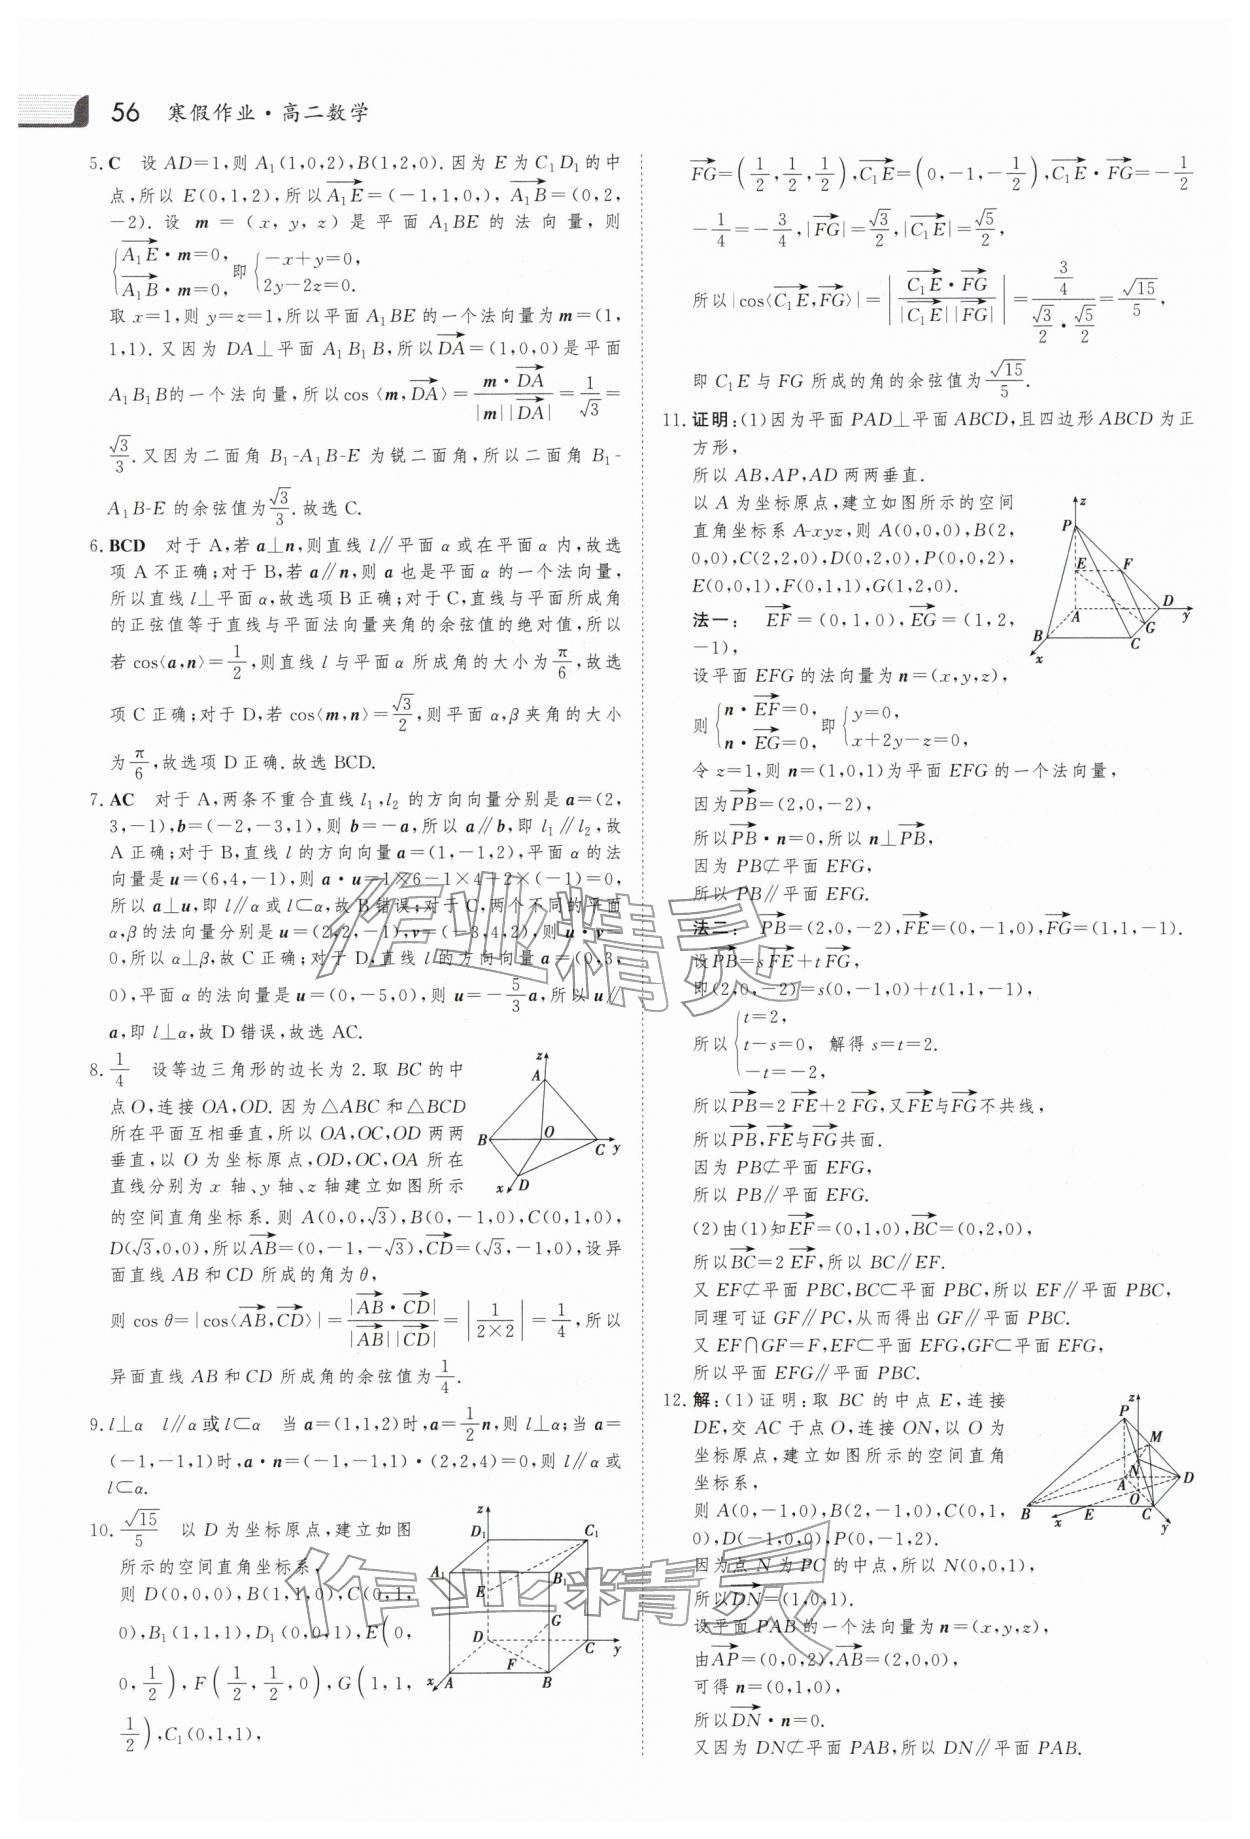 56 寒假作业·高二数学
5. C 设 AD=1,则 A₁(1,0,2),B(1,2,0).因为 E 为 C₁D₁ 的中
点,所以 E(0,1,2),所以$\overrightarrow{A_1E}$=(-1,1,0,),$\overrightarrow{A_1B}$=(0,2,
-2).设 m=(x,y,z)是平面 A₁BE 的法向量,则
$\begin{cases}\overrightarrow{A_1E}·m=0,\\\overrightarrow{A_1B}·m=0,\end{cases}$即$\begin{cases}-x+y=0,\\2y-2z=0.\end{cases}$
取 x=1,则 y=z=1,所以平面 A₁BE 的一个法向量为 m=(1,
1,1).又因为 DA⊥平面 A₁B₁B,所以$\overrightarrow{DA}$=(1,0,0)是平面
A₁B₁B的一个法向量,所以cos⟨m,$\overrightarrow{DA}$⟩=$\frac{m·\overrightarrow{DA}}{|m||\overrightarrow{DA}|}$=$\frac{1}{\sqrt{3}}$=
$\frac{\sqrt{3}}{3}$.又因为二面角 B₁-A₁B-E 为锐二面角,所以二面角 B₁-
A₁B-E 的余弦值为$\frac{\sqrt{3}}{3}$.故选 C.
6. BCD 对于 A,若 a⊥n,则直线 l∥平面 α 或在平面 α 内,故选
项 A 不正确;对于 B,若 a∥n,则 a 也是平面 α 的一个法向量,
所以直线 l⊥平面 α,故选项 B 正确;对于 C,直线与平面所成角
的正弦值等于直线与平面法向量夹角的余弦值的绝对值,所以
若 cos⟨a,n⟩=$\frac{1}{2}$,则直线 l 与平面 α 所成角的大小为$\frac{π}{6}$,故选
项 C 正确;对于 D,若 cos⟨m,n⟩=$\frac{\sqrt{3}}{2}$,则平面 α,β 夹角的大小
为$\frac{π}{6}$,故选项 D 正确.故选 BCD.
7. AC 对于 A,两条不重合直线 l₁,l₂ 的方向向量分别是 a=(2,
3,-1),b=(-2,-3,1),则 b=-a,所以 a∥b,即 l₁∥l₂,故
A 正确;对于 B,直线 l 的方向向量 a=(1,-1,2),平面 α 的法
向量是 u=(6,4,-1),则 a·u=1×6-1×4+2×(-1)=0,
所以 a⊥u,即 l∥α 或 l⊂α,故 B 错误;对于 C,两个不同的平面
α,β 的法向量分别是 u=(2,2,-1),v=(-3,4,2),则 u·v=
0,所以 α⊥β,故 C 正确;对于 D,直线 l 的方向向量 a=(0,3,
0),平面 α 的法向量是 u=(0,-5,0),则 u=-$\frac{5}{3}$a,所以 u∥
a,即 l⊥α,故 D 错误,故选 AC.
8. $\frac{1}{4}$ 设等边三角形的边长为 2.取 BC 的中
点 O,连接 OA,OD.因为△ABC 和△BCD
所在平面互相垂直,所以 OA,OC,OD 两两
垂直,以 O 为坐标原点,OD,OC,OA 所在
直线分别为 x 轴、y 轴、z 轴建立如图所示
的空间直角坐标系.则 A(0,0,√3),B(0,-1,0),C(0,1,0),
D(√3,0,0),所以$\overrightarrow{AB}$=(0,-1,-√3),$\overrightarrow{CD}$=(√3,-1,0),设异
面直线 AB 和 CD 所成的角为 θ,
则 cos θ=|cos⟨$\overrightarrow{AB}$,$\overrightarrow{CD}$⟩|=$\frac{|\overrightarrow{AB}·\overrightarrow{CD}|}{|\overrightarrow{AB}||\overrightarrow{CD}|}$=$\left|\frac{1}{2×2}\right|$=$\frac{1}{4}$,所以
异面直线 AB 和 CD 所成角的余弦值为$\frac{1}{4}$.
z A B O C y x D
9. l⊥α l∥α 或 l⊂α 当 a=(1,1,2)时,a=$\frac{1}{2}$n,则 l⊥α;当 a=
(-1,-1,1)时,a·n=(-1,-1,1)·(2,2,4)=0,则 l∥α 或
l⊂α.
10. $\frac{\sqrt{15}}{5}$ 以 D 为坐标原点,建立如图
所示的空间直角坐标系,
则 D(0,0,0),B(1,1,0),C(0,1,
0),B₁(1,1,1),D₁(0,0,1),E(0,
0,$\frac{1}{2}$),F($\frac{1}{2}$,$\frac{1}{2}$,0),G(1,1,
$\frac{1}{2}$),C₁(0,1,1),
z D₁ C₁ A₁ B₁ E G D C y F x A B
$\overrightarrow{FG}$=($\frac{1}{2}$,$\frac{1}{2}$,$\frac{1}{2}$),$\overrightarrow{C_1E}$=(0,-1,-$\frac{1}{2}$),$\overrightarrow{C_1E}$·$\overrightarrow{FG}$=-$\frac{1}{2}$
-$\frac{1}{4}$=-$\frac{3}{4}$,|$\overrightarrow{FG}$|=$\frac{\sqrt{3}}{2}$,|$\overrightarrow{C_1E}$|=$\frac{\sqrt{5}}{2}$,
所以|cos⟨$\overrightarrow{C_1E}$,$\overrightarrow{FG}$⟩|=$\left|\frac{\overrightarrow{C_1E}·\overrightarrow{FG}}{|\overrightarrow{C_1E}||\overrightarrow{FG}|}\right|$=$\frac{\frac{3}{4}}{\frac{\sqrt{3}}{2}·\frac{\sqrt{5}}{2}}$=$\frac{\sqrt{15}}{5}$,
即 C₁E 与 FG 所成的角的余弦值为$\frac{\sqrt{15}}{5}$.
11. 证明:(1)因为平面 PAD⊥平面 ABCD,且四边形 ABCD 为正
方形,
所以 AB,AP,AD 两两垂直.
以 A 为坐标原点,建立如图所示的空间
直角坐标系 A-xyz,则 A(0,0,0),B(2,
0,0),C(2,2,0),D(0,2,0),P(0,0,2),
E(0,0,1),F(0,1,1),G(1,2,0).
法一: $\overrightarrow{EF}$=(0,1,0),$\overrightarrow{EG}$=(1,2,
-1),
设平面 EFG 的法向量为 n=(x,y,z),
则$\begin{cases}n·\overrightarrow{EF}=0,\\n·\overrightarrow{EG}=0,\end{cases}$即$\begin{cases}y=0,\\x+2y-z=0,\end{cases}$
令 z=1,则 n=(1,0,1)为平面 EFG 的一个法向量,
因为$\overrightarrow{PB}$=(2,0,-2),
所以$\overrightarrow{PB}$·n=0,所以 n⊥$\overrightarrow{PB}$,
因为 PB⊄平面 EFG,
所以 PB∥平面 EFG.
z P E F D A y B G C x
法二: $\overrightarrow{PB}$=(2,0,-2),$\overrightarrow{FE}$=(0,-1,0),$\overrightarrow{FG}$=(1,1,-1).
设$\overrightarrow{PB}$=s$\overrightarrow{FE}$+t$\overrightarrow{FG}$,
即(2,0,-2)=s(0,-1,0)+t(1,1,-1),
所以$\begin{cases}t=2,\\t-s=0,\\-t=-2,\end{cases}$解得 s=t=2.
所以$\overrightarrow{PB}$=2$\overrightarrow{FE}$+2$\overrightarrow{FG}$,又$\overrightarrow{FE}$与$\overrightarrow{FG}$不共线,
所以$\overrightarrow{PB}$,$\overrightarrow{FE}$与$\overrightarrow{FG}$共面.
因为 PB⊄平面 EFG,
所以 PB∥平面 EFG.
(2)由(1)知$\overrightarrow{EF}$=(0,1,0),$\overrightarrow{BC}$=(0,2,0),
所以$\overrightarrow{BC}$=2$\overrightarrow{EF}$,所以 BC∥EF.
又 EF⊄平面 PBC,BC⊂平面 PBC,所以 EF∥平面 PBC,
同理可证 GF∥PC,从而得出 GF∥平面 PBC.
又 EF∩GF=F,EF⊂平面 EFG,GF⊂平面 EFG,
所以平面 EFG∥平面 PBC.
12. 解:(1)证明:取 BC 的中点 E,连接
DE,交 AC 于点 O,连接 ON,以 O 为
坐标原点,建立如图所示的空间直角
坐标系,
则 A(0,-1,0),B(2,-1,0),C(0,1,
0),D(-1,0,0),P(0,-1,2).
因为点 N 为 PC 的中点,所以 N(0,0,1),
所以$\overrightarrow{DN}$=(1,0,1).
设平面 PAB 的一个法向量为 n=(x,y,z),
由$\overrightarrow{AP}$=(0,0,2),$\overrightarrow{AB}$=(2,0,0),
可得 n=(0,1,0),
所以$\overrightarrow{DN}$·n=0.
又因为 DN⊄平面 PAB,所以 DN∥平面 PAB.
z P M N A D O B x E C y
作业精灵
作业精灵